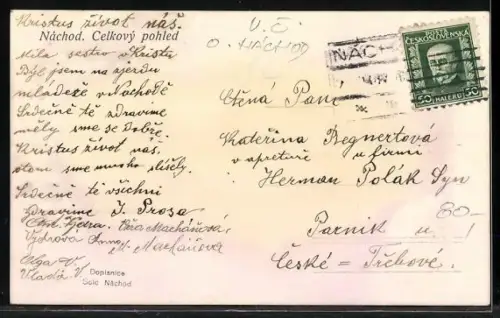 Kristus život náš.
Náchod. Celkový pohled
Milá sestro v Kristu
Byl jsem na zjezdu
mládeže v Náchodě
Srdečně tě zdravíme
měly sme se dobře.
Kristus život náš
o tom sme mnoho slišely.
Srdečně tě všichni
zdravíme J. Prosa
Machářová
Machářova
Olga V.
Vlad. V.
Dopisnice
Solc Náchod
V. Č.
O. NÁCHOD
NÁCH
ČESKOSLOVENSKÁ
50 HALÉŘŮ 50
Ctěná Paní
Kateřina Regnertova
v apretuře u firmi
Herman Polák Syn
Parník u
České = Třebové.
80-